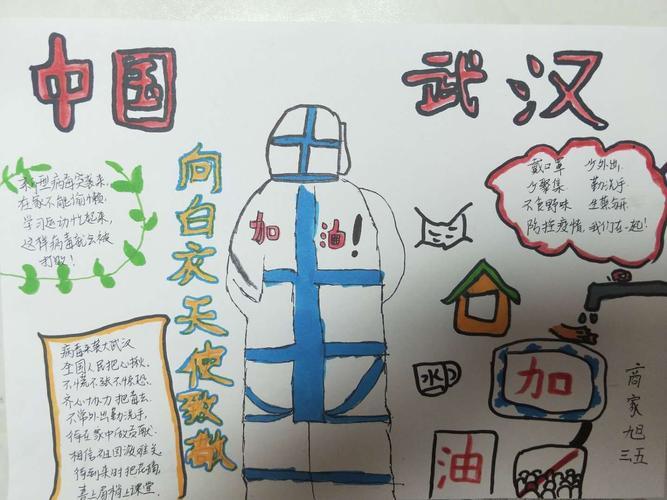 中国
武汉
向白衣天使致敬
加油!
新型病毒突袭来,
在家不能偷懒,
学习运动忙起来,
这样病毒就会被
打败!
戴口罩 少外出
少聚集 勤洗手
不食野味
防控疫情,我们在一起!
病毒来袭大武汉
全国人民把心揪,
不慌不张不惊恐,
齐心协力把毒去,
不常外出勤洗手,
待在家中做贡献.
相信祖国渡难关
待到来时
喜上眉梢上课堂.
水
加
油
商家旭
三五